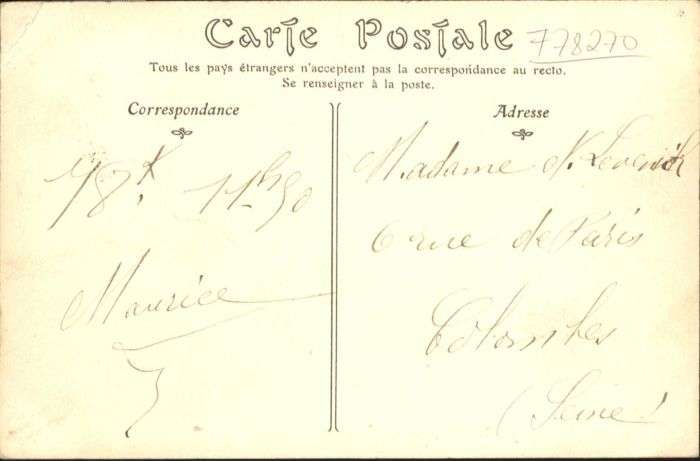 Carte Postale
778270
Tous les pays étrangers n'acceptent pas la correspondance au recto.
Se renseigner à la poste.
Correspondance
11h50
Maurice
Adresse
Madame
6 rue de Paris
Colombes
(Seine)